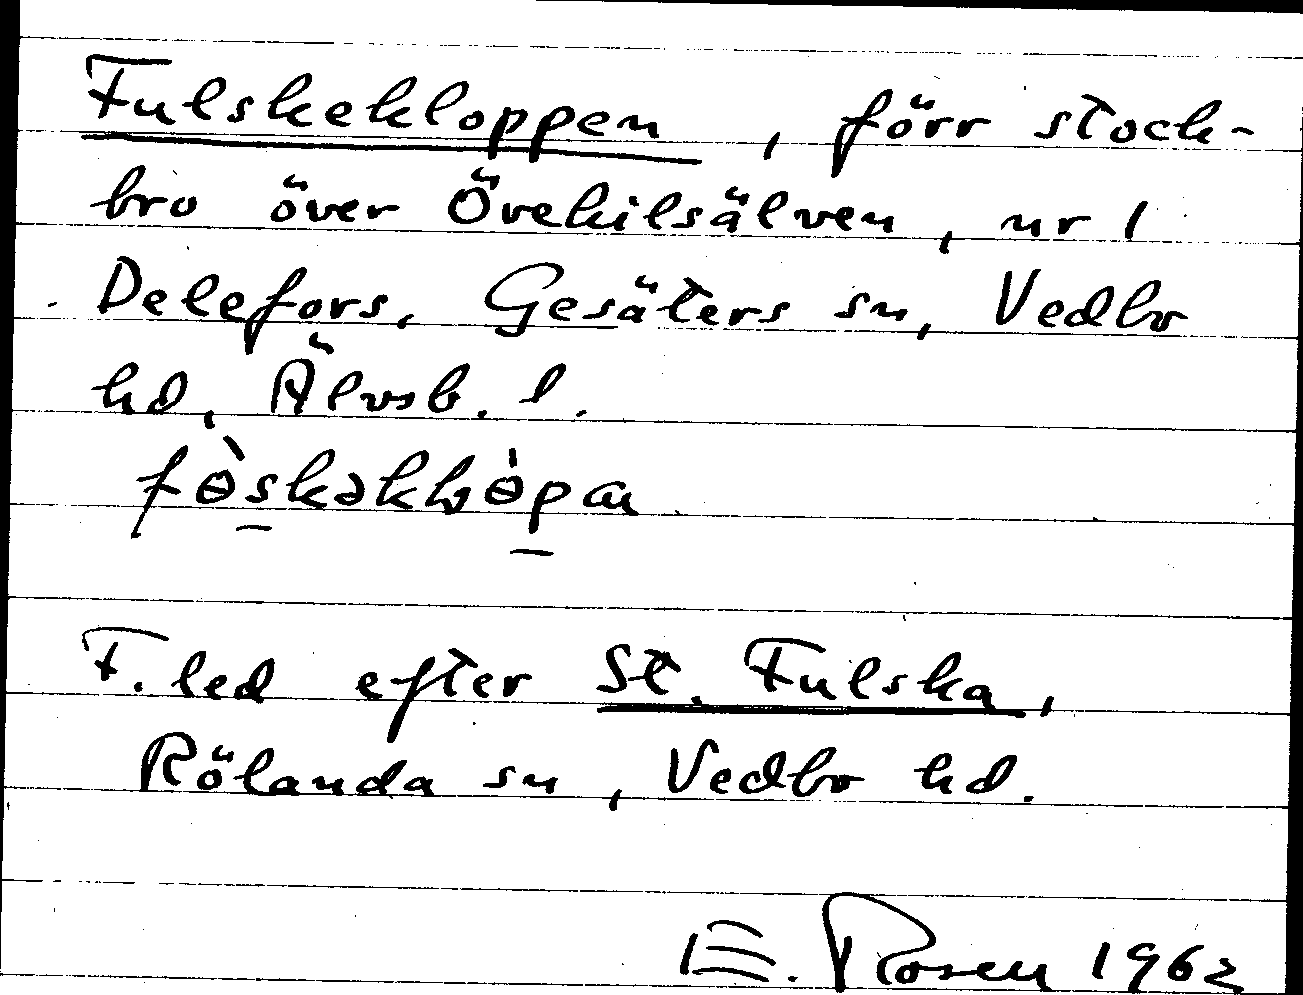 Fulskekloppen, förr stock-
bro över Örekilsälven, nr 1
Delefors, Gesäters sn, Vedbo
hd, Älvsb. l.
F. led efter St. Fulska,
Rölanda sn, Vedbo hd.
E. Rosen 1962